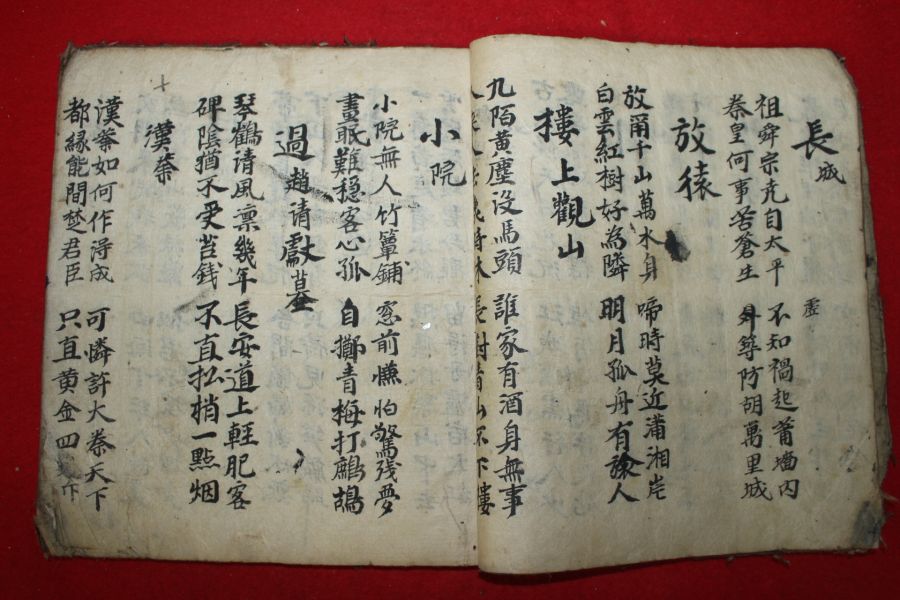 長城
祖舜宗堯自太平
秦皇何事苦蒼生
不知禍起莆墻內
虛
等防胡萬里城
放猿
放爾千山萬水身
白雲紅樹好為隣
啼時莫近瀟湘岸
明月孤舟有旅人
樓上觀山
九陌黃塵沒馬頭
人
誰家有酒身無事
長對青山不下樓
小院
小院無人竹簟鋪
晝眠難穩客心孤
窓前慊怕驚残夢
自擲青梅打鷓鴣
過趙清獻墓
琴鶴清風凛幾年
碑陰猶不受苔錢
長安道上輕肥客
不直松梢一點烟
漢業
漢業如何作淂成
都緣能間楚君臣
可憐許大秦天下
只直黄金四